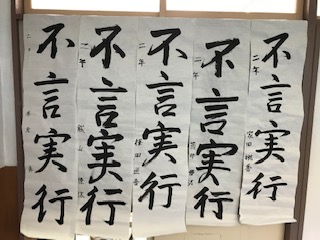 不言実行
二年
宮田
不言実行
二年
不言実行
二年
保田
不言実行
二年
不言実行
二年